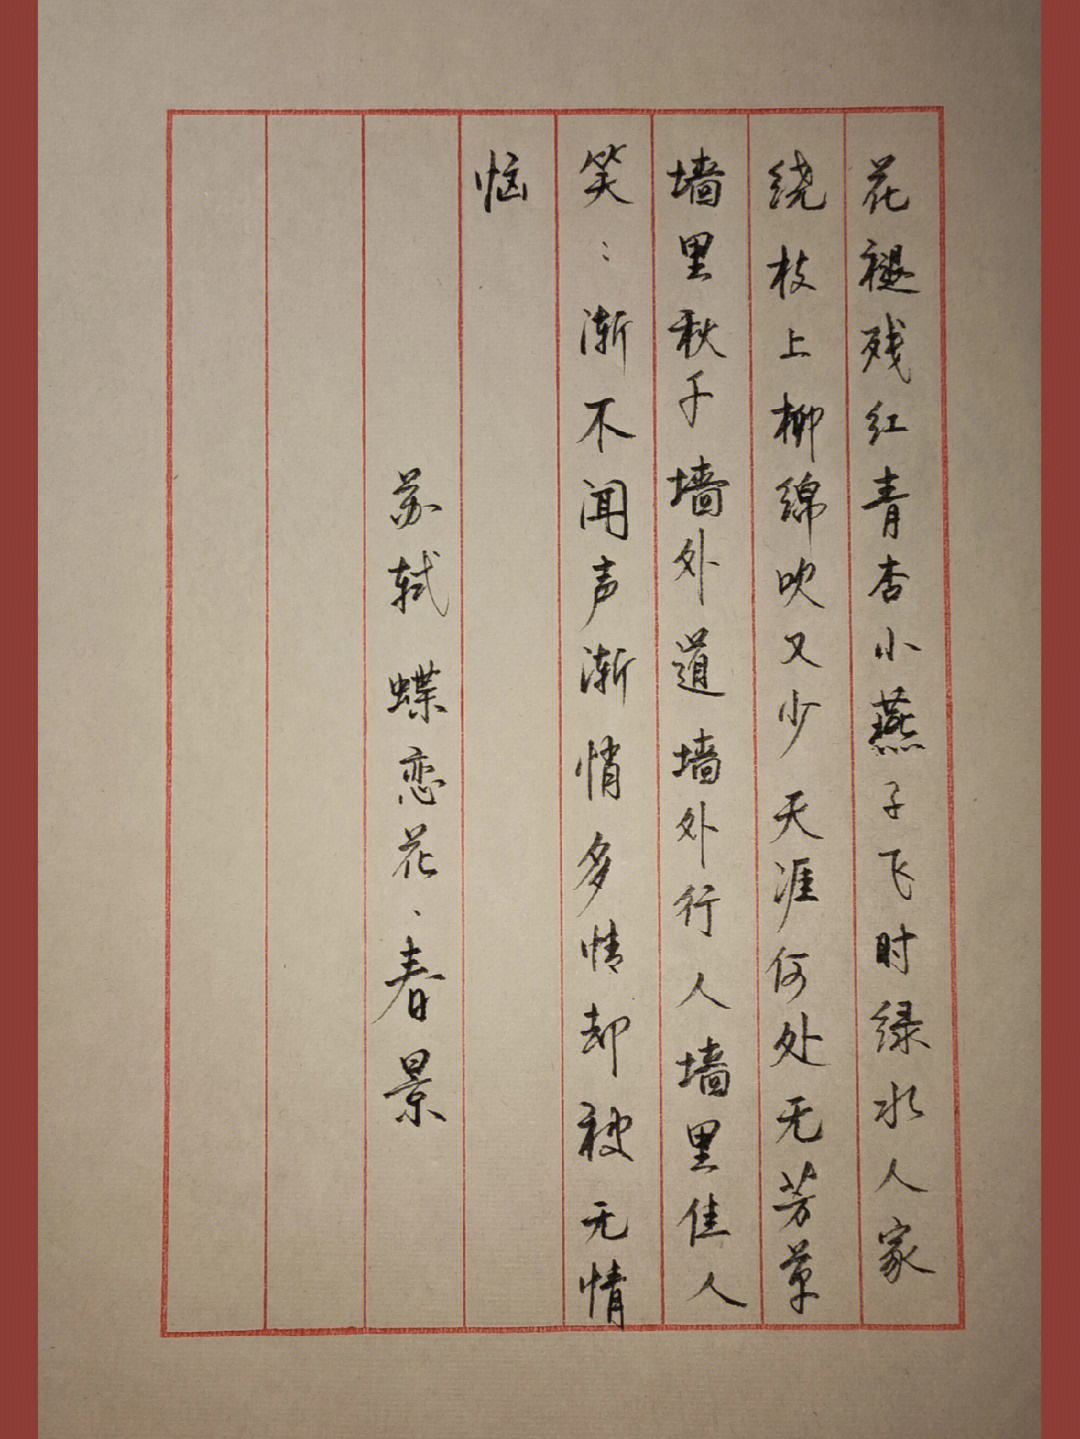 花褪残红青杏小燕子飞时绿水人家
绕枝上柳绵吹又少天涯何处无芳草
墙里秋千墙外道墙外行人墙里佳人
笑：渐不闻声渐悄多情却被无情
恼
苏轼 蝶恋花、春景